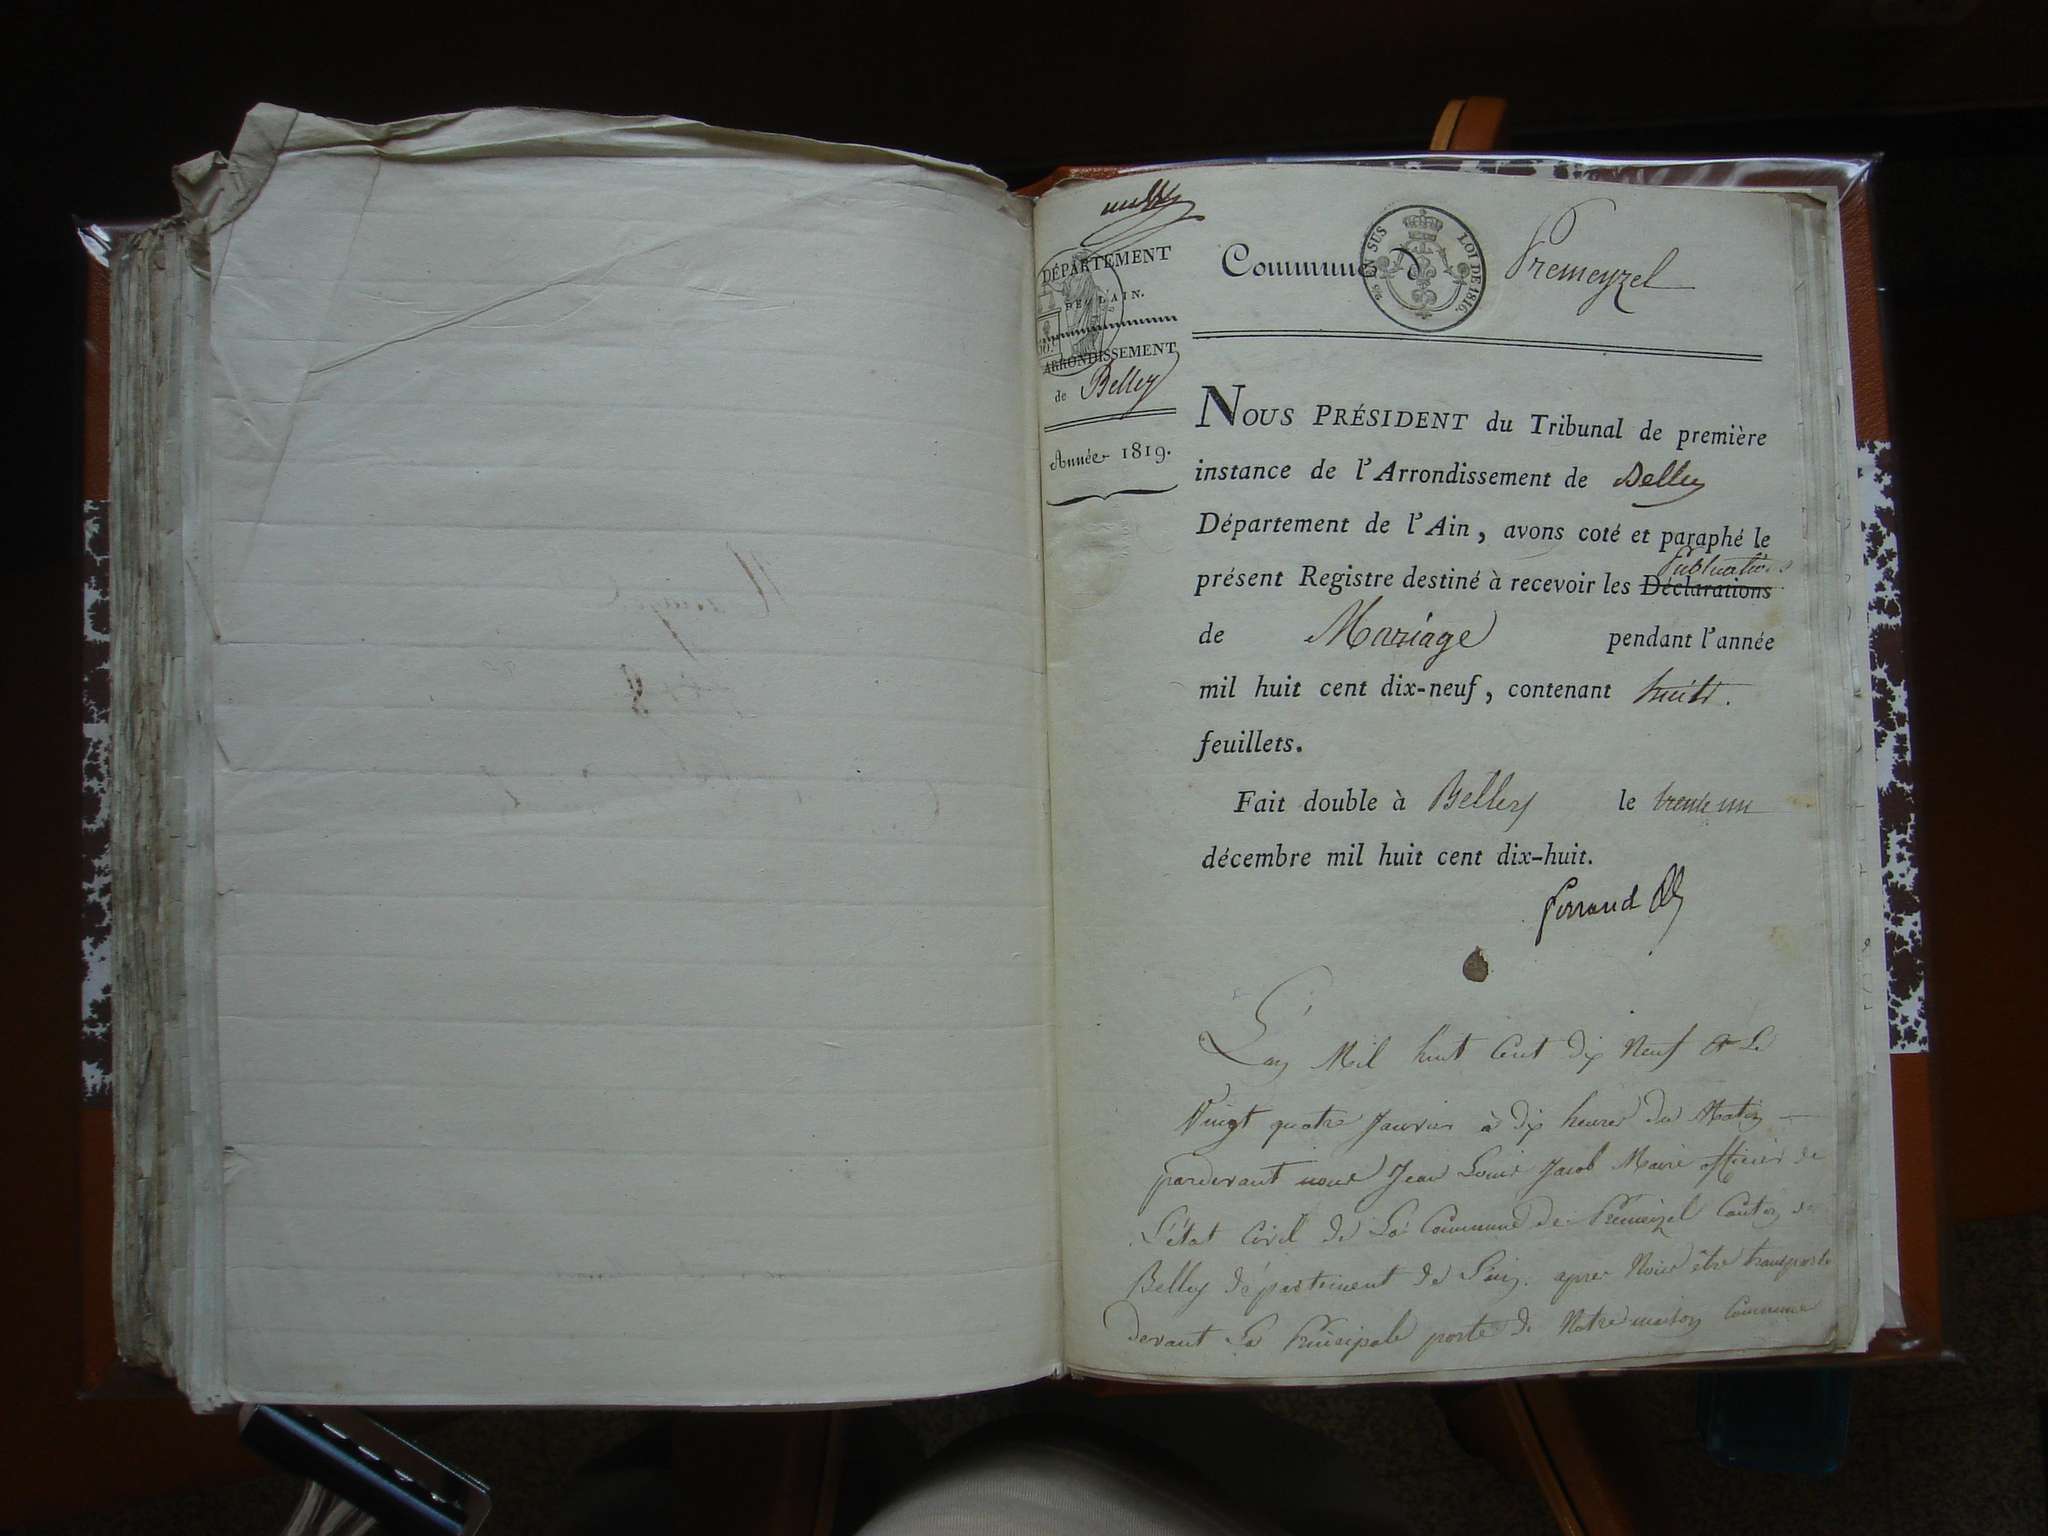 DÉPARTEMENT
DE L'AIN.
ARRONDISSEMENT
de Belley
Année 1819.
Commune de Premeyzel
25 EN SUS LOI DE 1816.
NOUS PRÉSIDENT du Tribunal de première
instance de l'Arrondissement de Belley
Département de l'Ain, avons coté et paraphé le
Publications
présent Registre destiné à recevoir les Déclarations
de Mariage pendant l'année
mil huit cent dix-neuf, contenant huit.
feuillets.
Fait double à Belley le trente un
décembre mil huit cent dix-huit.
L'an Mil huit Cent dix Neuf & Le
Vingt quatre Janvier à dix heures du Matin
pardevant nous Jean Louis Jacob Maire officier de
L'état Civil de La Commune de Premeizel Canton de
Belley département de L'ain. apres Nous être transporté
devant La Principale porte de Notre maison Commune